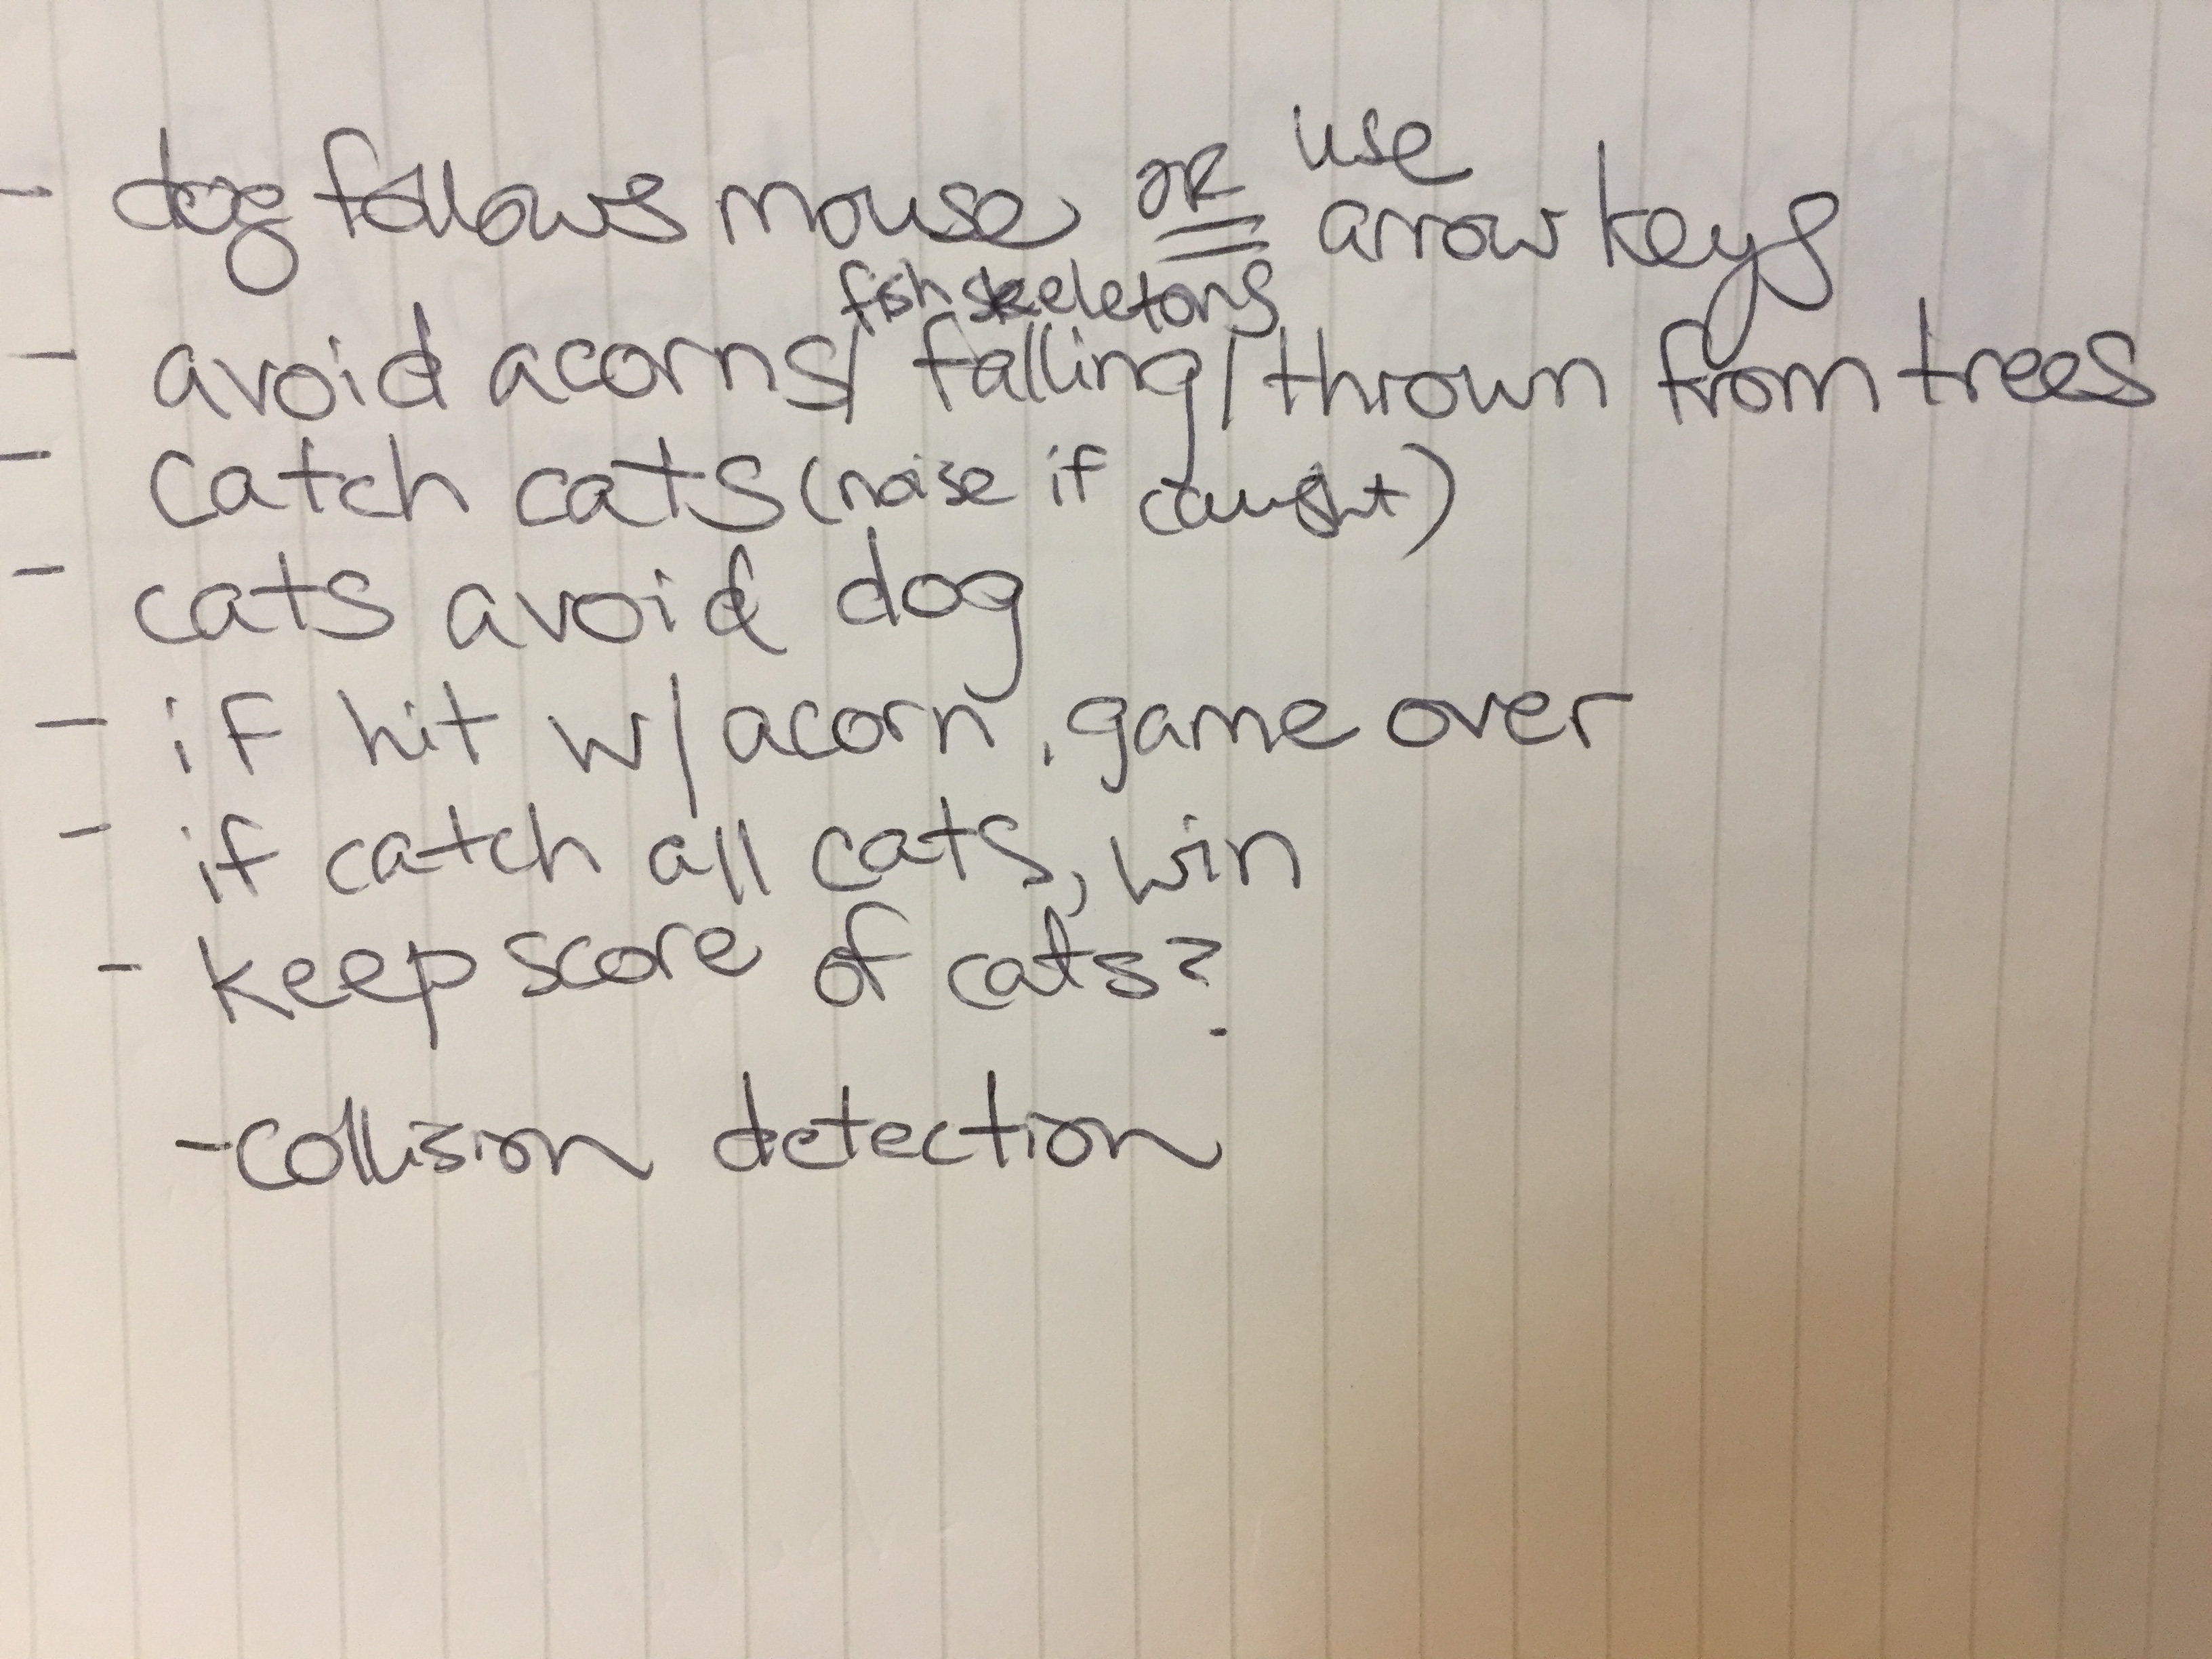 - dog follows mouse OR use arrow keys
- avoid acorns/fish skeletons falling/thrown from trees
- catch cats (noise if caught)
- cats avoid dog
- if hit w/ acorn, game over
- if catch all cats, win
- keep score of cats?
- collision detection